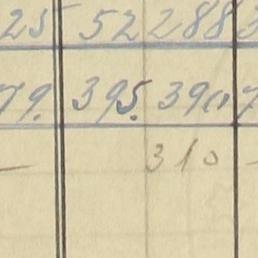 25 52 288 3
79. 395. 390 7
310